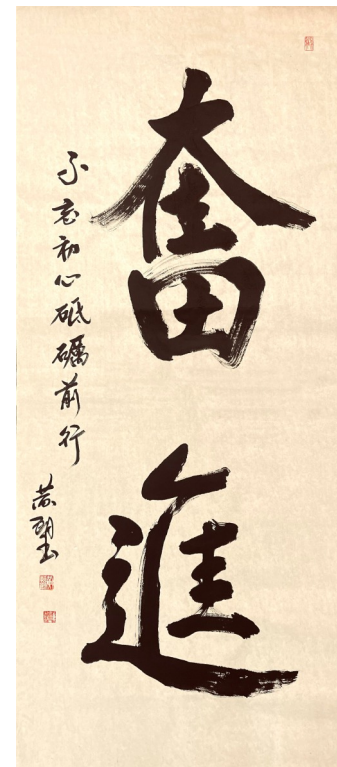 奮進
不忘初心砥礪前行